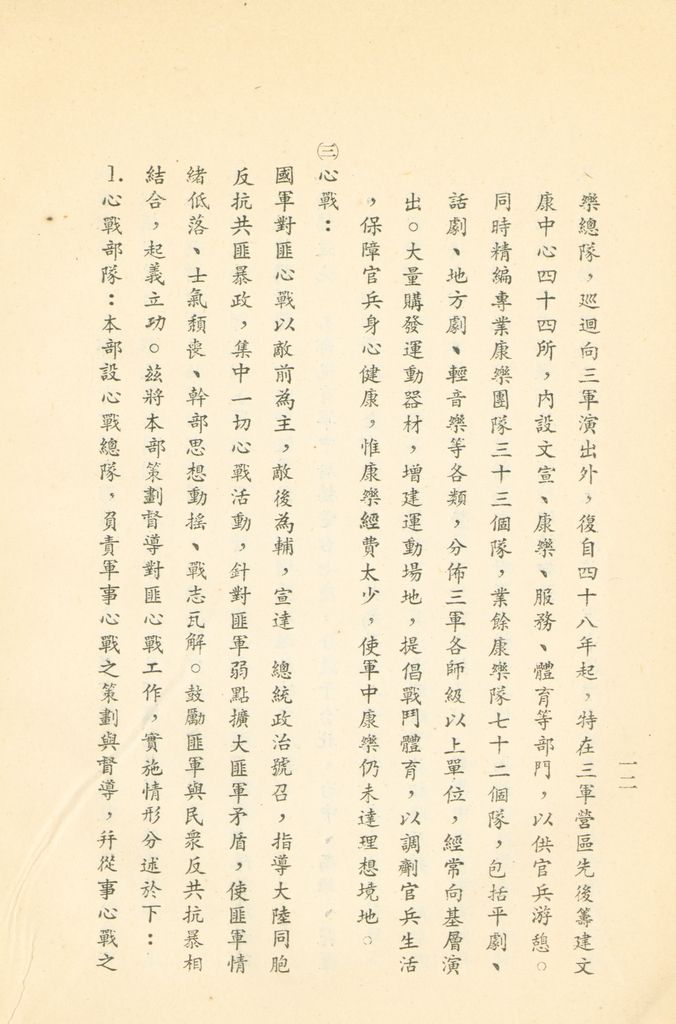 樂總隊，巡迴向三軍演出外，復自四十八年起，特在三軍營區先後籌建文
康中心四十四所，內設文宣、康樂、服務、體育等部門，以供官兵游憩。
同時精編專業康樂團隊三十三個隊，業餘康樂隊七十二個隊，包括平劇、
話劇、地方劇、輕音樂等各類，分佈三軍各師級以上單位，經常向基層演
出。大量購發運動器材，增建運動場地，提倡戰鬥體育，以調劑官兵生活
，保障官兵身心健康，惟康樂經費太少，使軍中康樂仍未達理想境地。
㈢心戰：
國軍對匪心戰以敵前為主，敵後為輔，宣達　總統政治號召，指導大陸同胞
反抗共匪暴政，集中一切心戰活動，針對匪軍弱點擴大匪軍矛盾，使匪軍情
緒低落、士氣頹喪、幹部思想動搖、戰志瓦解。鼓勵匪軍與民眾反共抗暴相
結合，起義立功。茲將本部策劃督導對匪心戰工作，實施情形分述於下：
1.心戰部隊：本部設心戰總隊，負責軍事心戰之策劃與督導，并從事心戰之
一二